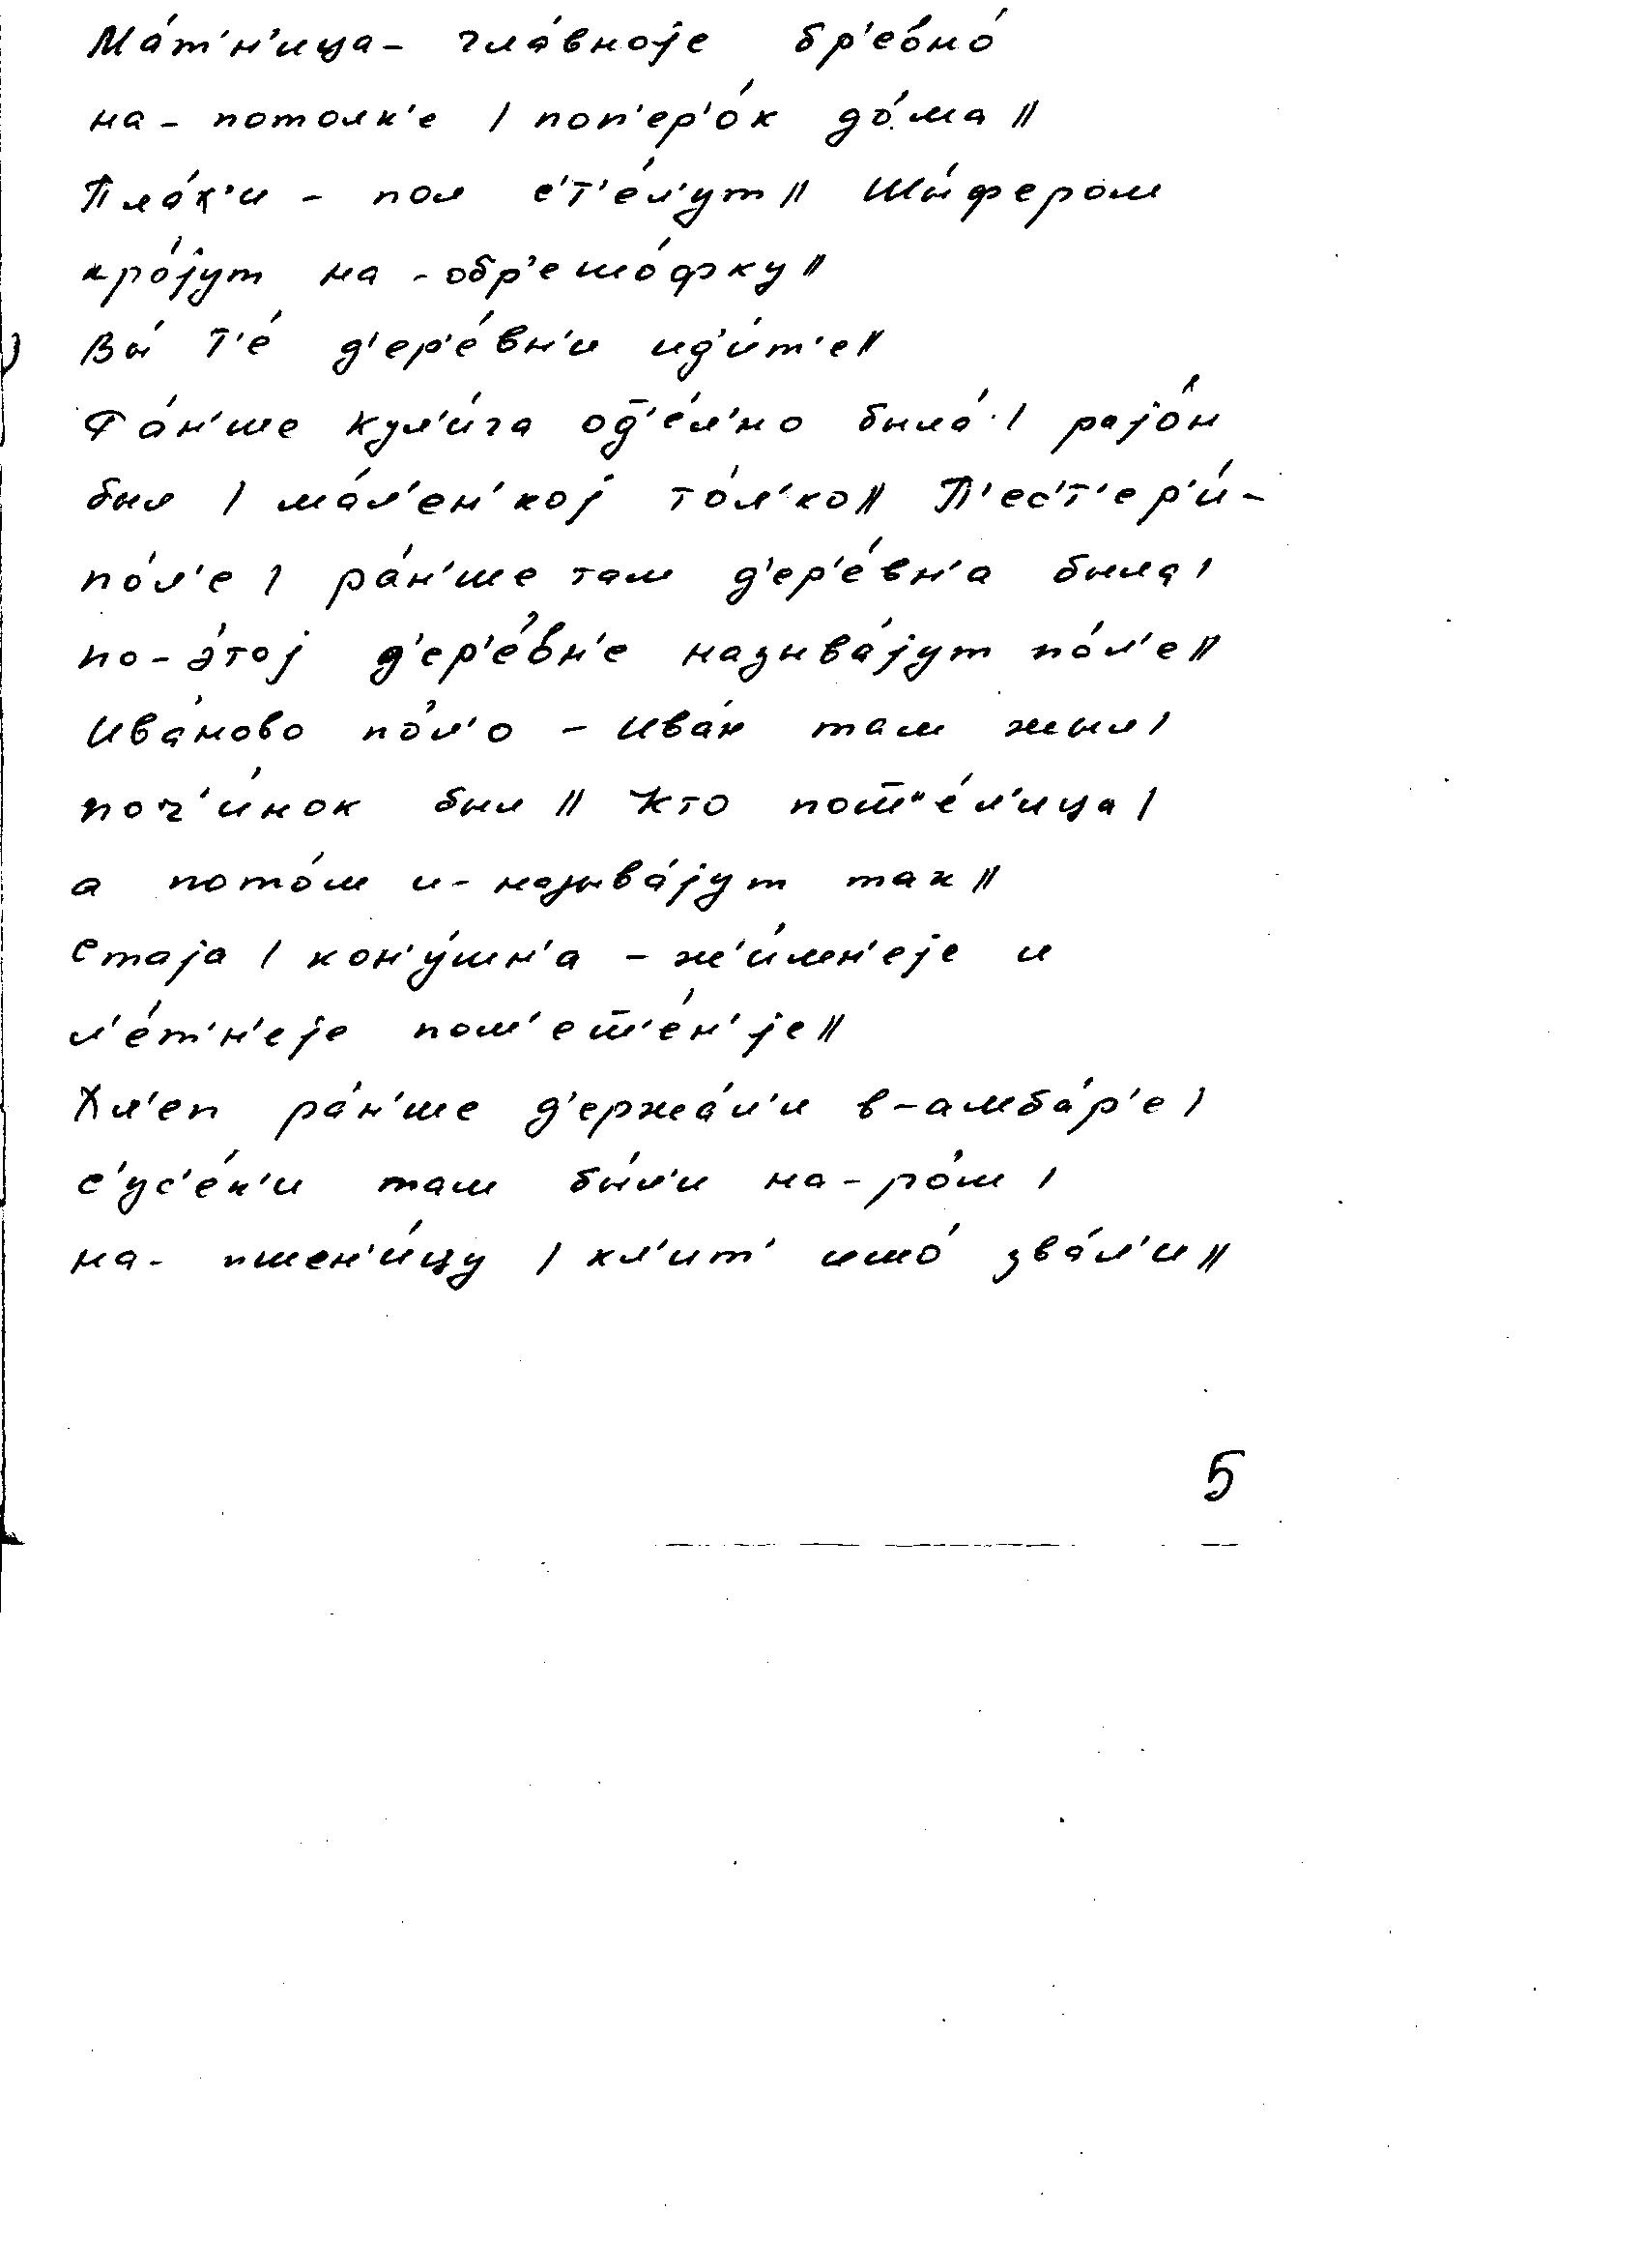 Ма́т'н'ица – гла́вноје бр'евно́
на-потолк'е | поп'ер'о́к до́ма ||
Пла́х'и – пол с'т'е́л'ут || Шы́фером
кро́јут на-обр'ешо́фку ||
Вы́ т'е́ д'ер'е́вн'и ид'и́т'е ||
Ра́н'ше кул'и́га од̅'е́л'но была́ | рајо́н
был | ма́л'ен'кој то́л'ко || П'ес'т'ер'и́-
по́л'е | ра́н'ше там д'ер'е́вн'а была |
по-э́тој д'ер'е́вн'е называ́јут по́л'е ||
Ива́ново по́л'о – Ива́н там жыл |
поч'и́нок был || Кто пос̅'е́л'ица |
а пото́м и-называ́јут так ||
Стаја | кон'у́шн'а – ж'и́мн'еје и
л'е́т'н'еје пом'еш̅'е́н'је ||
Хл'еп ра́н'ше д'ержа́л'и в-амба́р'е |
с'ус'е́к'и там бы́л'и на-ро́ш |
на-пшен'и́цу | кл'ит' ишо́ зва́л'и ||
5